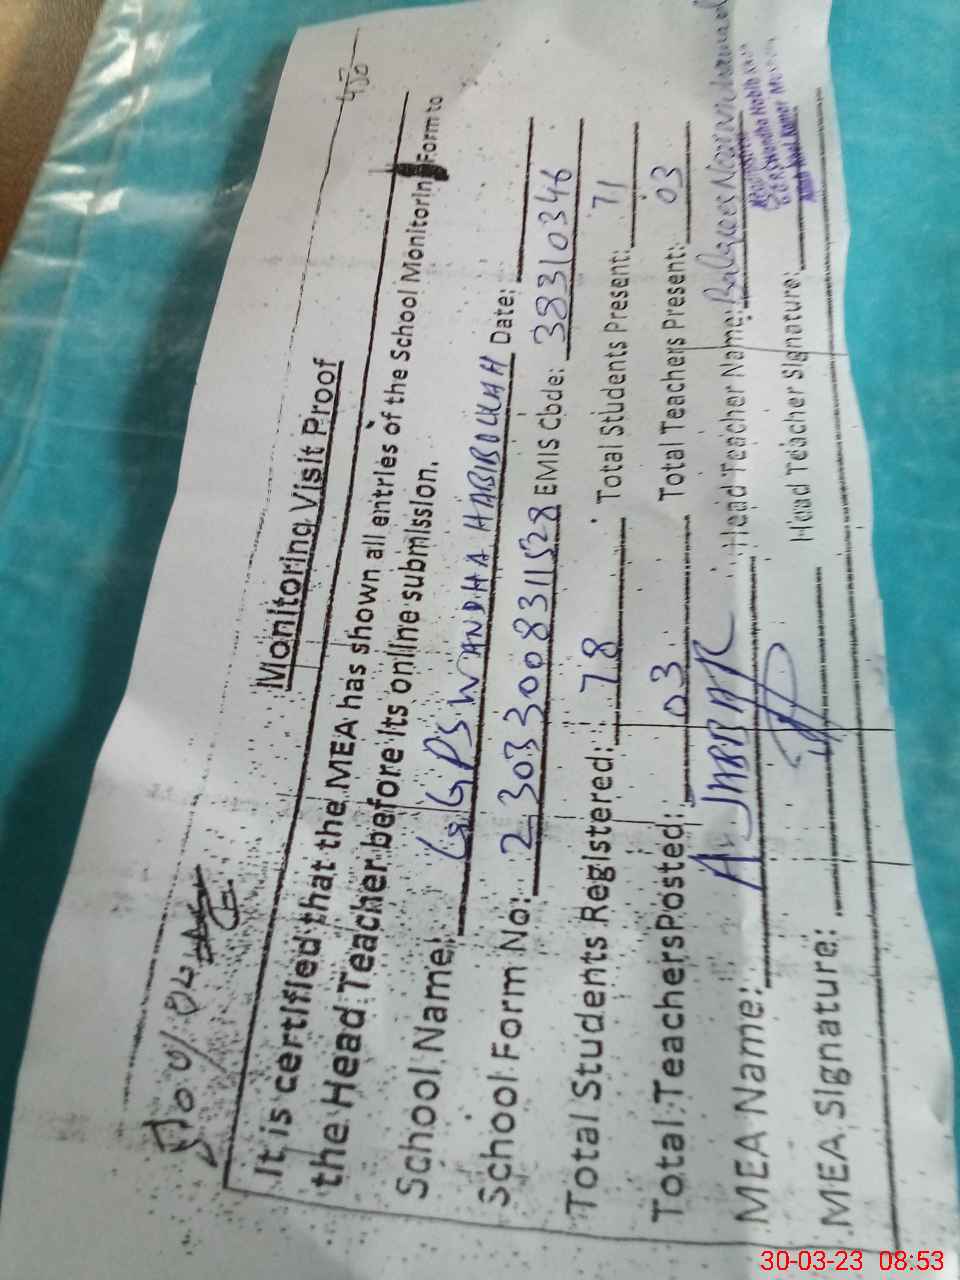 450
Monitoring Visit Proof
It is certified that the MEA has shown all entries of the School Monitorin Form to
the Head Teacher before its online submission.
School Name: GGPS WANDHA HABIBULLAH Date:
School Form No: 23033008311528 EMIS Code: 38310346
Total Students Registered: 78 Total Students Present: 71
Total Teachers Posted: 03 Total Teachers Present: 03
MEA Name: A JABBAR Head Teacher Name: Balqees
MEA Signature: Head Teacher Signature:
30-03-23 08:53